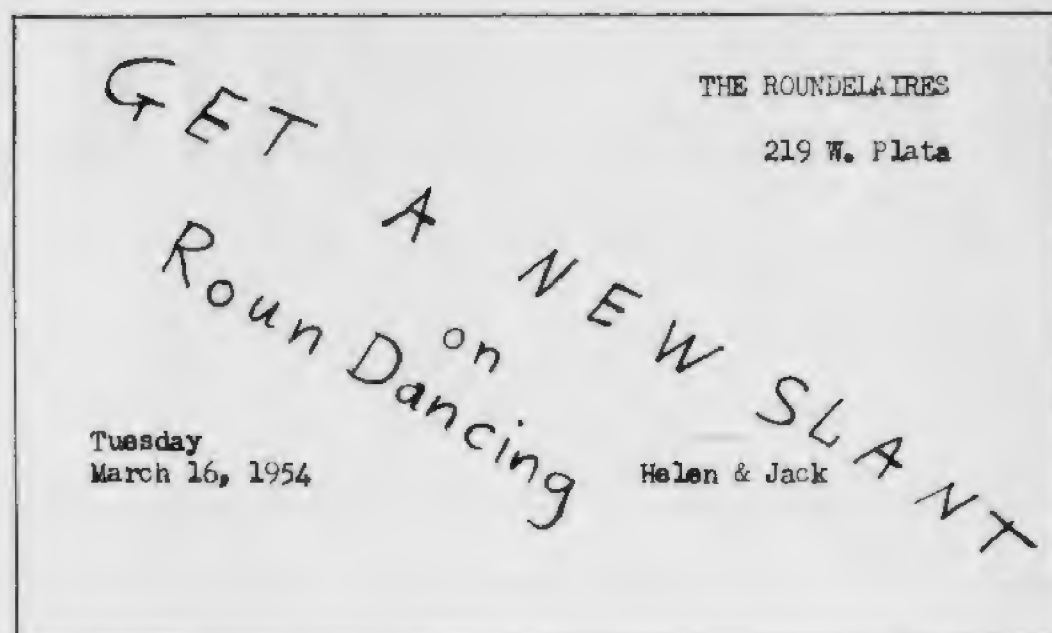 THE ROUNDELAIRES
219 W. Plata
GET A NEW SLANT
on
Roun Dancing
Tuesday
March 16, 1954
Helen & Jack